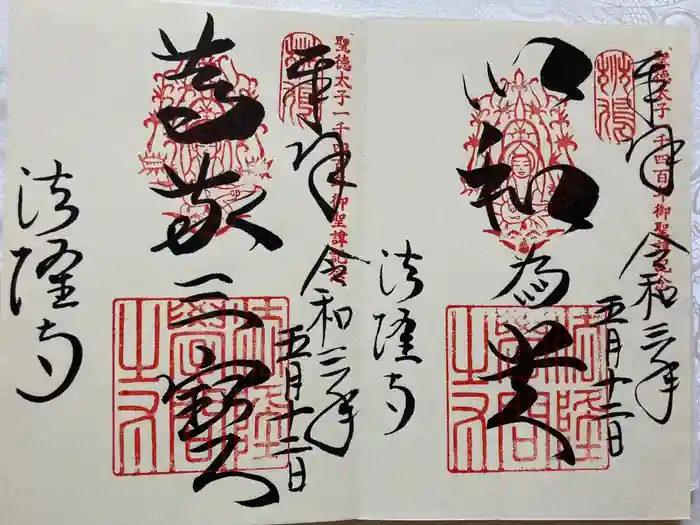 奉拝
聖徳太子千四百年御聖諱記念
令和三年
五月十二日
以和為貴
法隆寺
奉拝
聖徳太子一千四百年御聖諱記念
令和三年
五月十二日
篤敬三寶
法隆寺